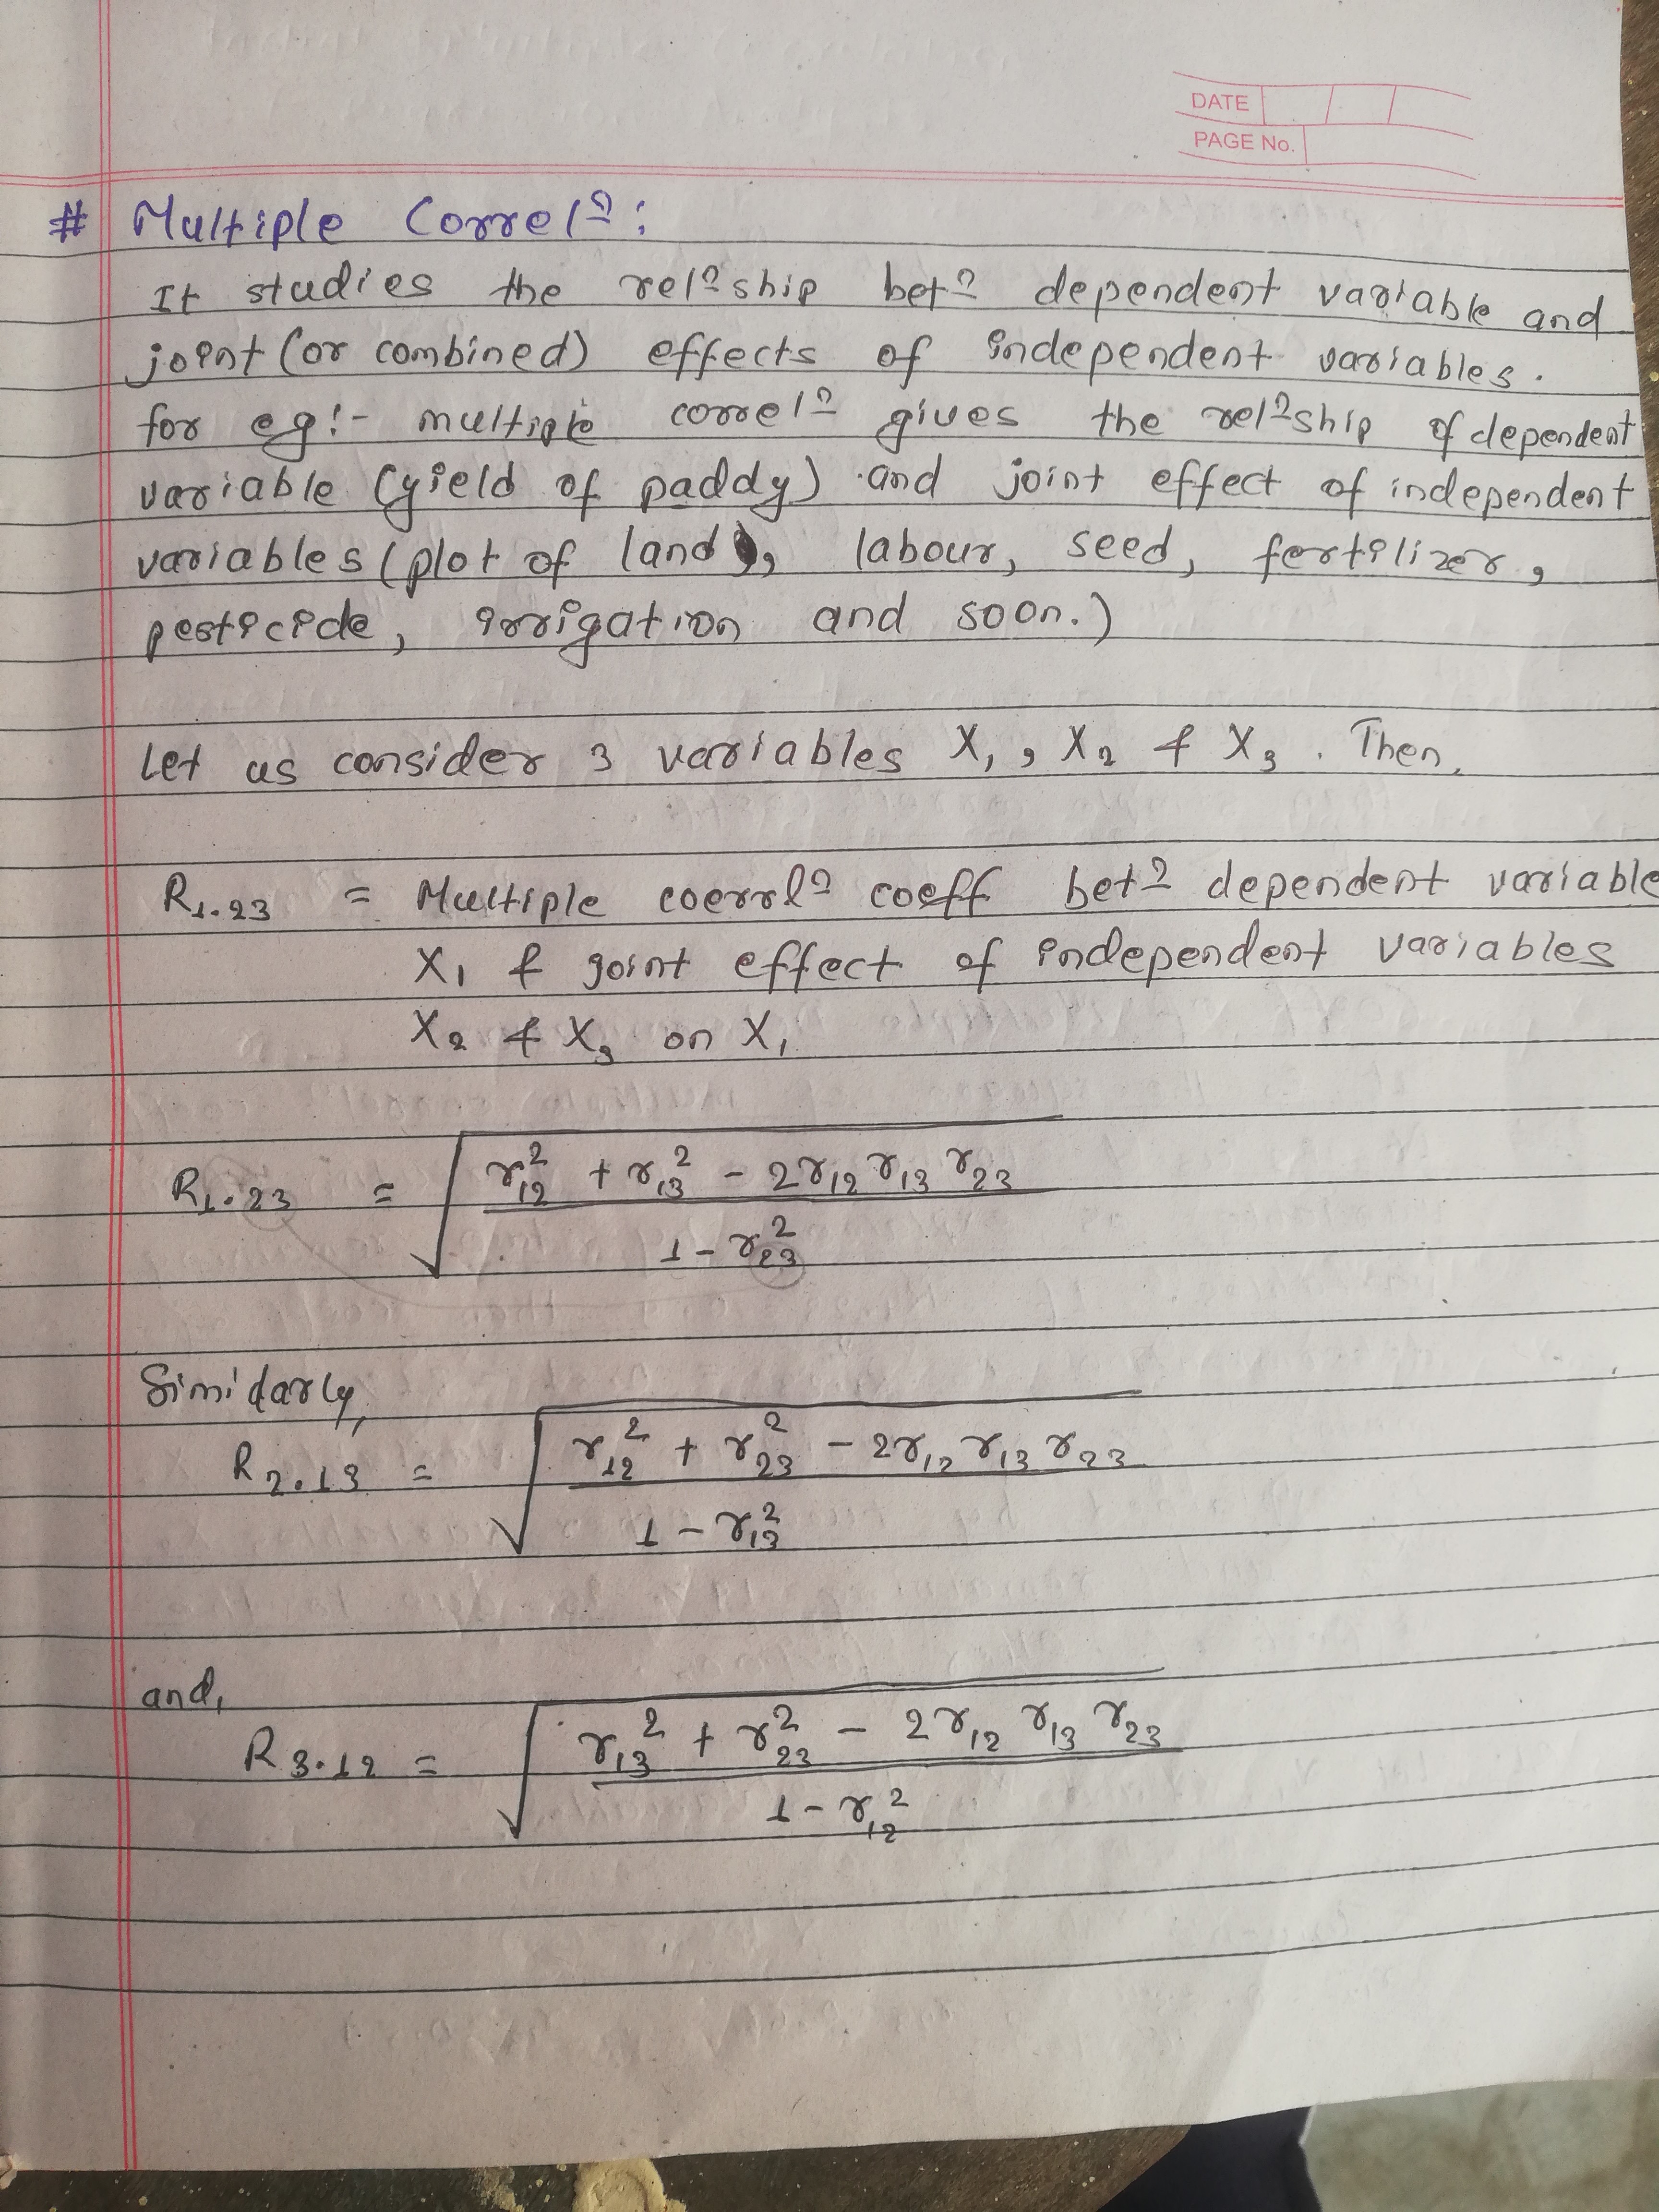 DATE
PAGE No.
# Multiple Correlⁿ:
It studies the relⁿship betⁿ dependent variable and
joint (or combined) effects of independent variables.
for eg:- multiple correlⁿ gives the relⁿship of dependent
variable (yield of paddy) and joint effect of independent
variables (plot of land, labour, seed, fertilizer,
pesticide, irrigation and soon.)
Let us consider 3 variables X₁, X₂ & X₃. Then,
R₁.₂₃ = Multiple coerrlⁿ coeff betⁿ dependent variable
X₁ & joint effect of independent variables
X₂ & X₃ on X₁
R₁.₂₃ = √((r₁₂² + r₁₃² - 2r₁₂ r₁₃ r₂₃) / (1 - r₂₃²))
Similarly,
R₂.₁₃ = √((r₁₂² + r₂₃² - 2r₁₂ r₁₃ r₂₃) / (1 - r₁₃²))
and,
R₃.₁₂ = √((r₁₃² + r₂₃² - 2r₁₂ r₁₃ r₂₃) / (1 - r₁₂²))